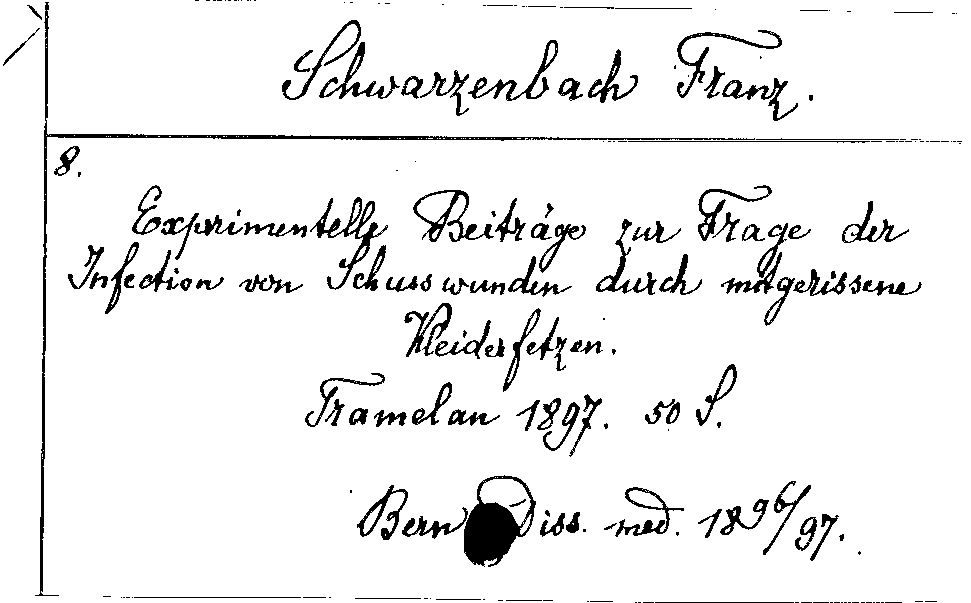 Schwarzenbach Franz.
8.
Experimentelle Beiträge zur Frage der
Infection von Schusswunden durch mitgerissene
Kleiderfetzen.
Tramelan 1897. 50 S.
Bern Diss. med. 1896/97.